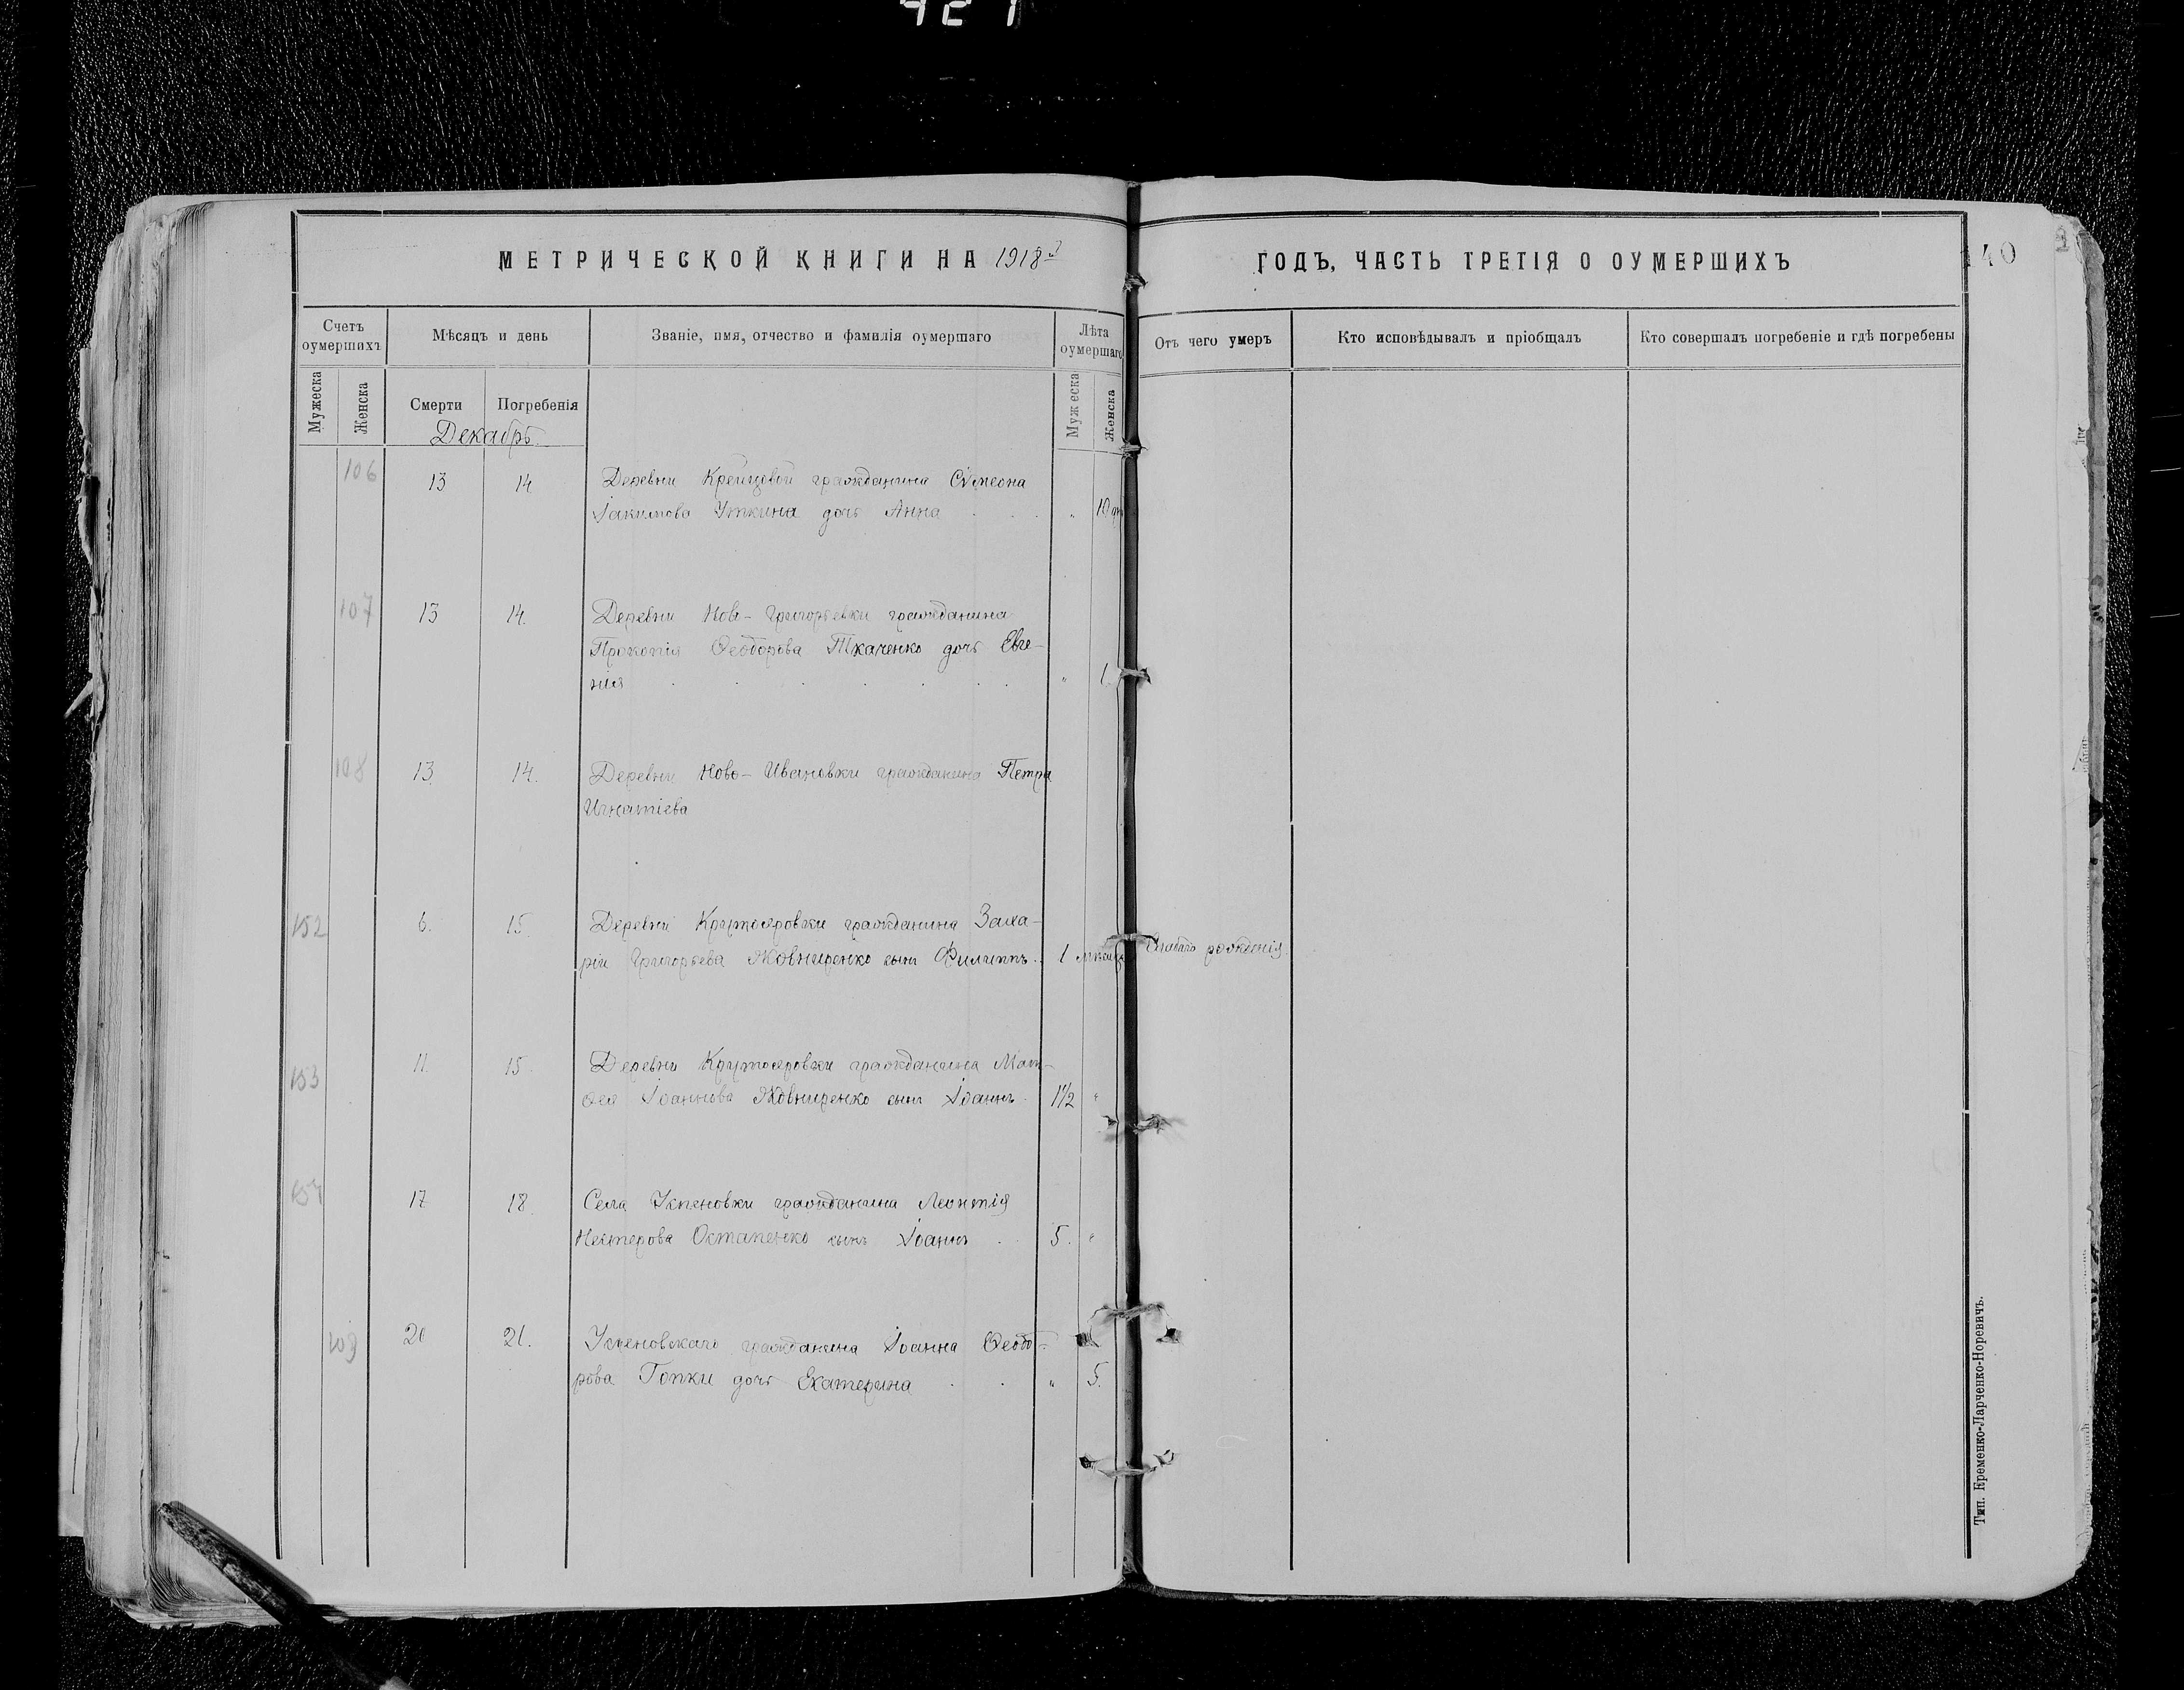 421
МЕТРИЧЕСКОЙ КНИГИ НА 1918й
ГОДЪ, ЧАСТЬ ТРЕТІЯ О ОУМЕРШИХЪ
140
Счетъ оумершихъ
Мѣсяцъ и день
Званіе, имя, отчество и фамилія оумершаго
Лѣта оумершаго
Отъ чего умеръ
Кто исповѣдывалъ и пріобщалъ
Кто совершалъ погребеніе и гдѣ погребены
Мужеска
Женска
Смерти
Погребенія
Мужеска
Женска
Декабрь
106 13 14 Деревни Крейцовой гражданина Сѵмеона
Іакимова Уткина дочь Анна . . . " 10
107 13 14. Деревни Ново-Григорьевки гражданина
Прокопія Ѳеодорова Ткаченко дочь Евге-
нія . . . . . . " 1.
108 13 14. Деревни Ново-Ивановки гражданина Петра
Игнатіева
152 6. 15. Деревни Крутояровки гражданина Заха-
рія Григорьева Жовниренко сынъ Филиппъ. 1 рожденія.
153 11. 15. Деревни Крутояровки гражданина Мат-
ѳея Іоаннова Жовниренко сынъ Іоаннъ. 1½ "
154 17 18. Села Успеновки гражданина Леонтія
Нестерова Остапенко сынъ Іоаннъ . . 5. "
109 20 21. Успеновскаго гражданина Іоанна Ѳеодо-
рова Гопки дочь Екатерина . . " 5.
Тип. Еременко-Ларченко-Норевичъ.